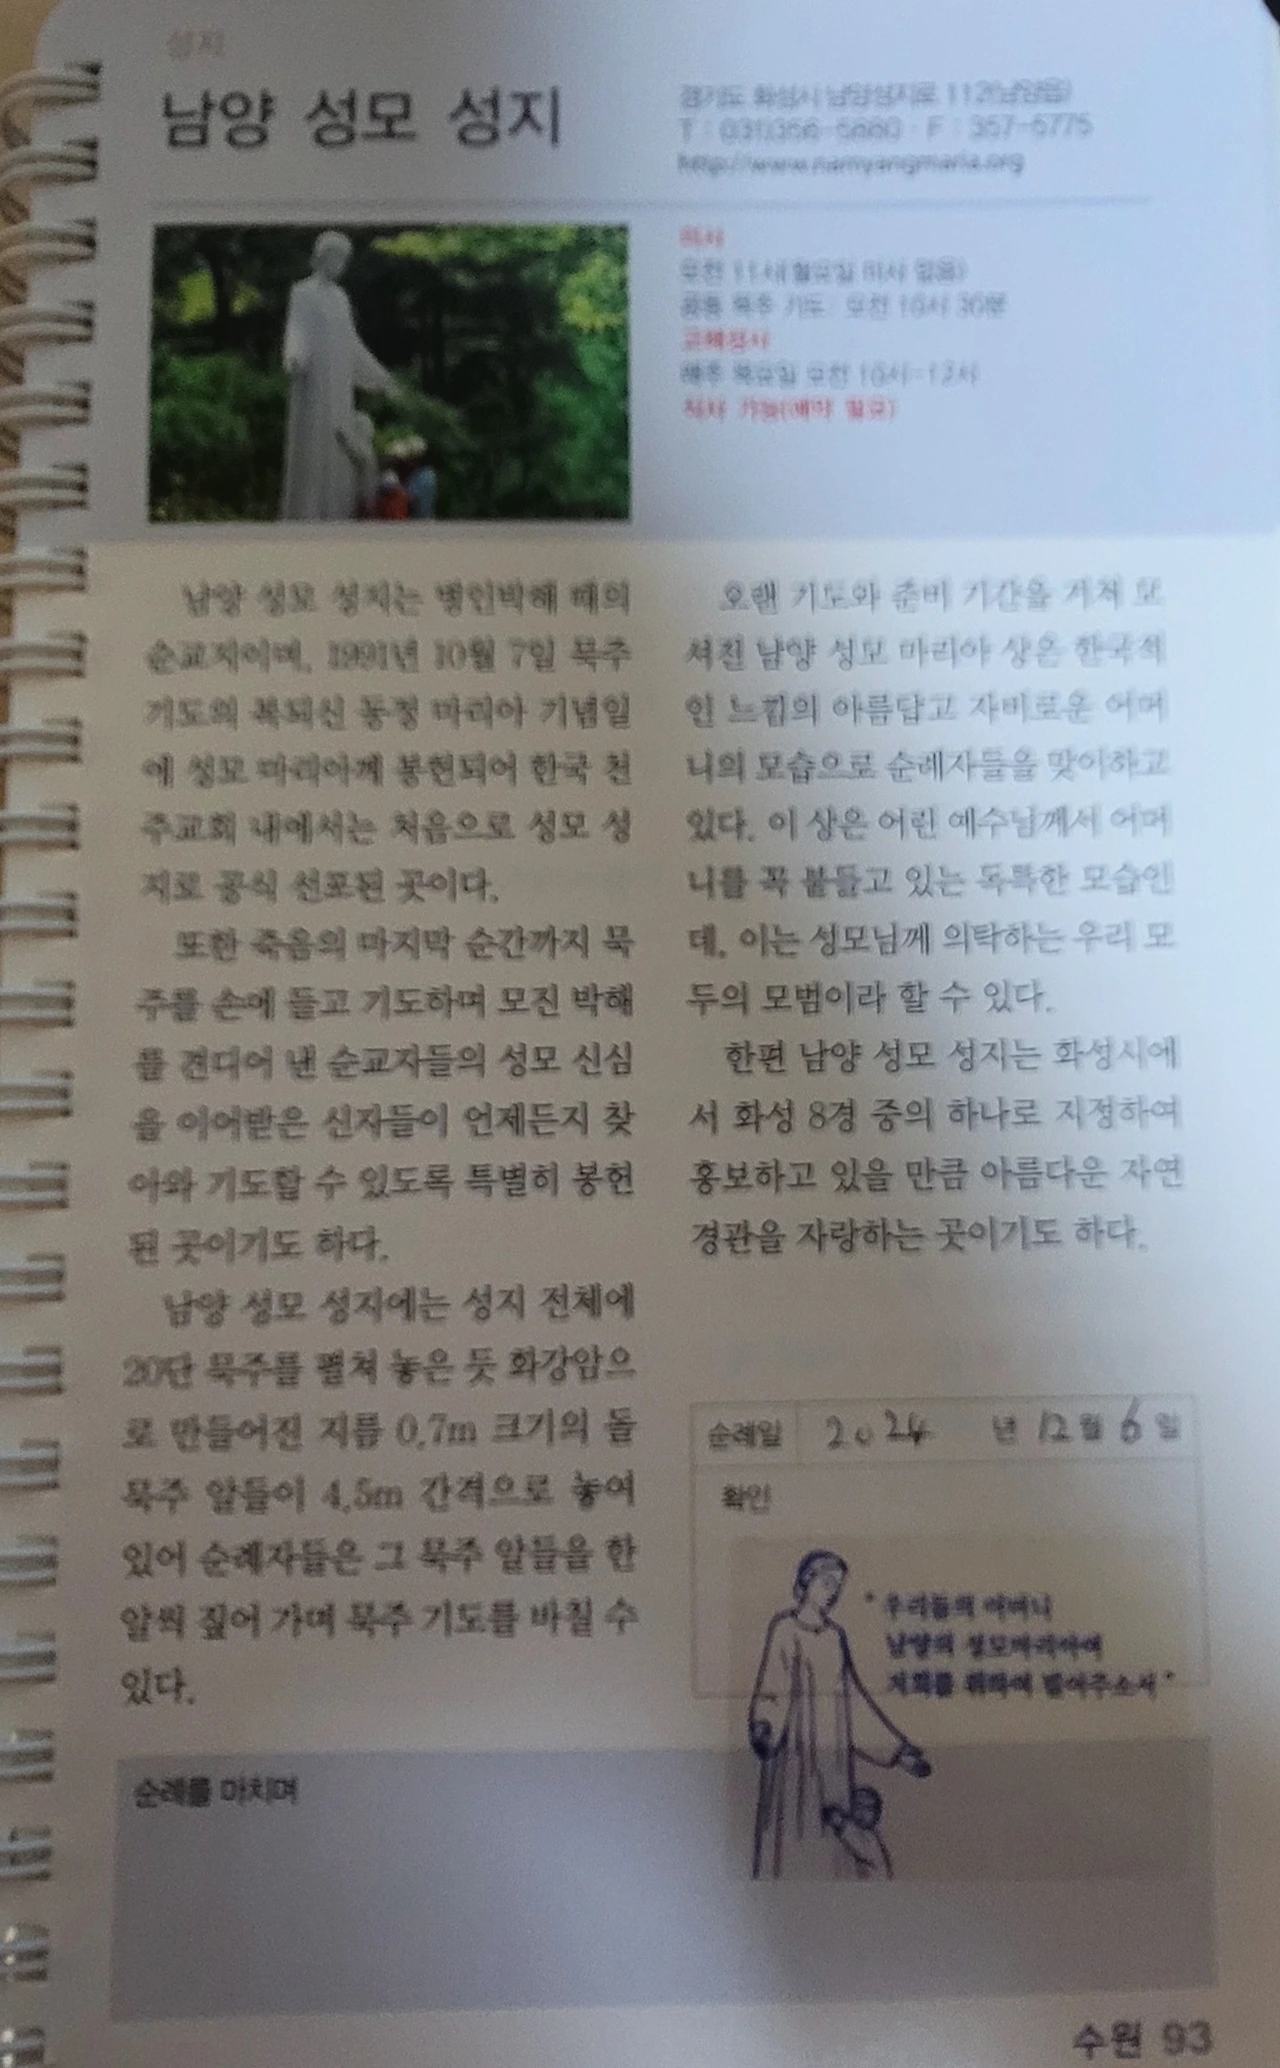 성지
남양 성모 성지
경기도 화성시 남양성지로 112(남양읍)
T : 031)356-5880 · F : 357-5775
http://www.namyangmaria.org
미사
오전 11시(월요일 미사 없음)
공동 묵주 기도: 오전 10시 30분
고해성사
매주 목요일 오전 10시-12시
식사 가능(예약 필요)
남양 성모 성지는 병인박해 때의
순교지이며, 1991년 10월 7일 묵주
기도의 복되신 동정 마리아 기념일
에 성모 마리아께 봉헌되어 한국 천
주교회 내에서는 처음으로 성모 성
지로 공식 선포된 곳이다.
또한 죽음의 마지막 순간까지 묵
주를 손에 들고 기도하며 모진 박해
를 견디어 낸 순교자들의 성모 신심
을 이어받은 신자들이 언제든지 찾
아와 기도할 수 있도록 특별히 봉헌
된 곳이기도 하다.
남양 성모 성지에는 성지 전체에
20단 묵주를 펼쳐 놓은 듯 화강암으
로 만들어진 지름 0.7m 크기의 돌
묵주 알들이 4.5m 간격으로 놓여
있어 순례자들은 그 묵주 알들을 한
알씩 짚어 가며 묵주 기도를 바칠 수
있다.
오랜 기도와 준비 기간을 거쳐 모
셔진 남양 성모 마리아 상은 한국적
인 느낌의 아름답고 자비로운 어머
니의 모습으로 순례자들을 맞이하고
있다. 이 상은 어린 예수님께서 어머
니를 꼭 붙들고 있는 독특한 모습인
데, 이는 성모님께 의탁하는 우리 모
두의 모범이라 할 수 있다.
한편 남양 성모 성지는 화성시에
서 화성 8경 중의 하나로 지정하여
홍보하고 있을 만큼 아름다운 자연
경관을 자랑하는 곳이기도 하다.
순례일 2024 년 12 월 6 일
확인
"우리들의 어머니
남양의 성모마리아여
저희를 위하여 빌어주소서"
순례를 마치며
수원 93